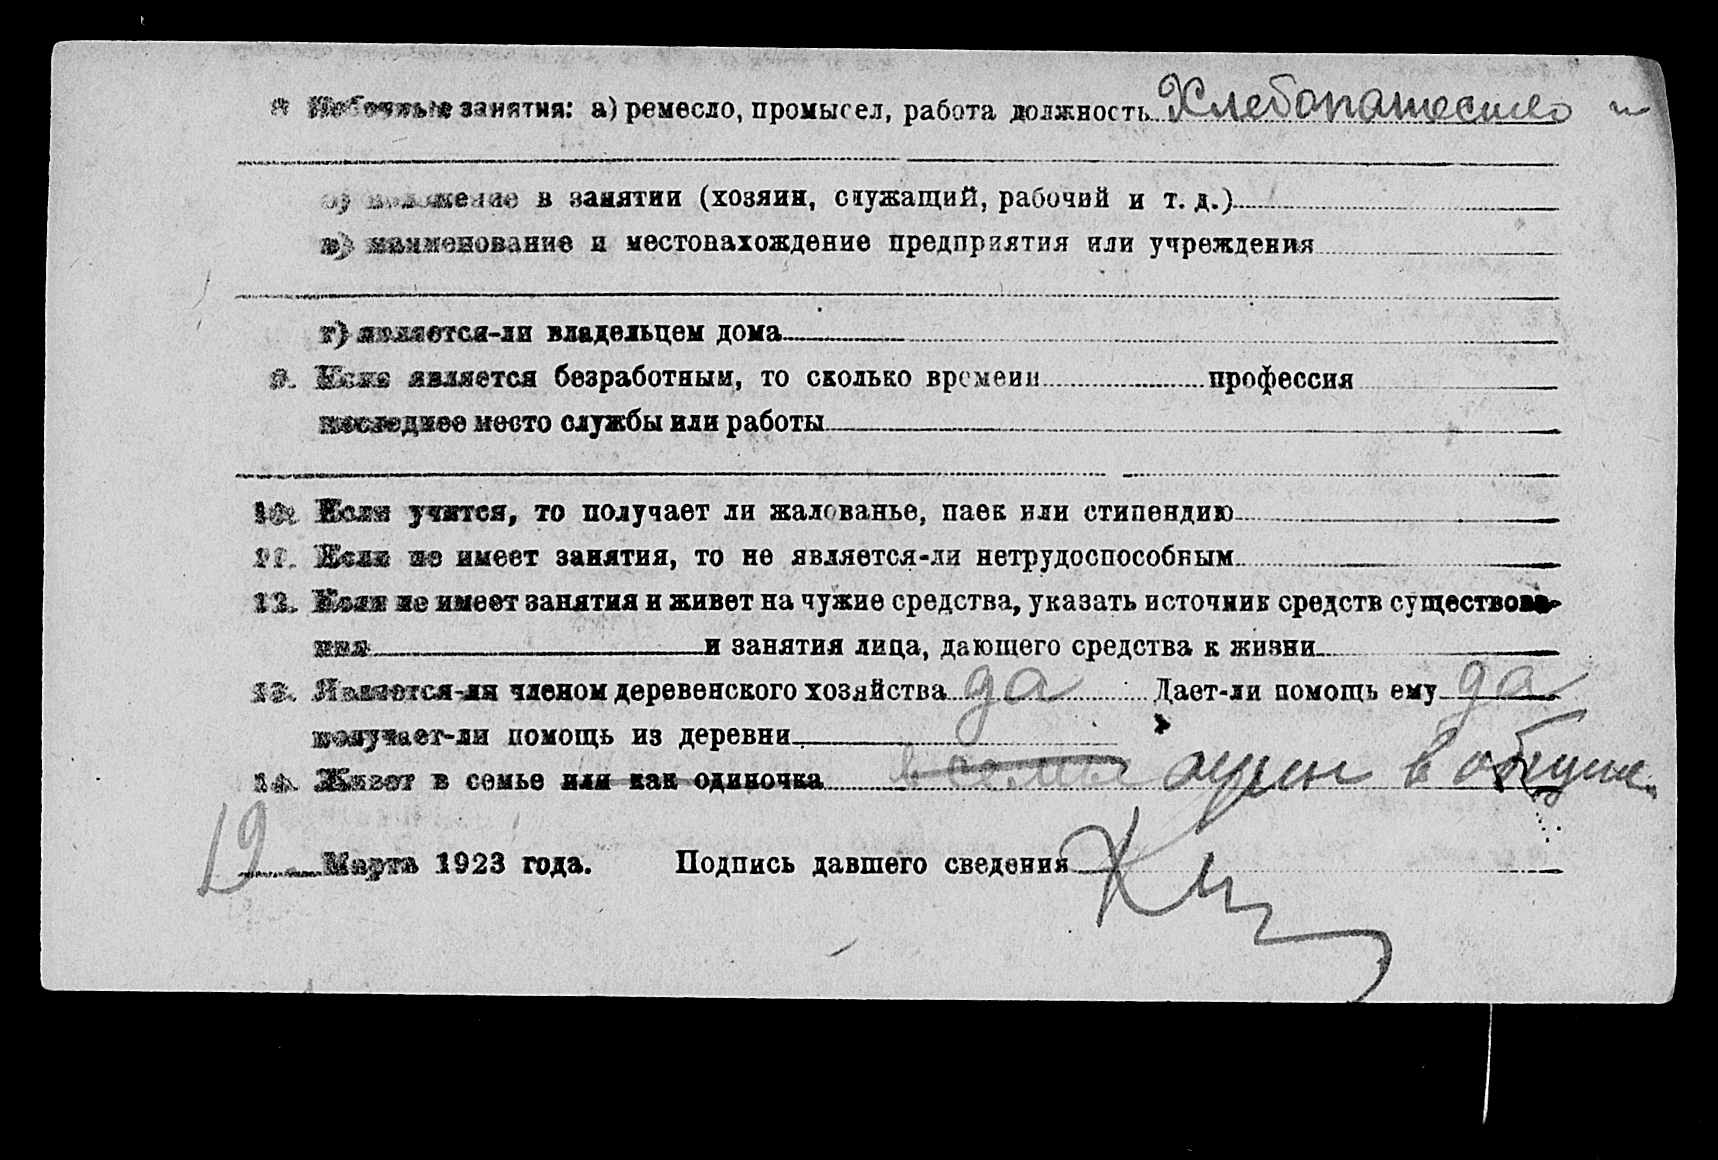 8 Побочные занятия: а) ремесло, промысел, работа должность Хлебопашество
б) положение в занятии (хозяин, служащий, рабочий и т. д.)
в) наименование и местонахождение предприятия или учреждения
г) является-ли владельцем дома
9. Если является безработным, то сколько времени профессия
последнее место службы или работы
10. Если учится, то получает ли жалованье, паек или стипендию
11. Если не имеет занятия, то не является-ли нетрудоспособным
12. Если не имеет занятия и живет на чужие средства, указать источник средств существова-
ния и занятия лица, дающего средства к жизни
13. Является-ли членом деревенского хозяйства да Дает-ли помощь ему да
получает-ли помощь из деревни
14. Живет в семье или как одиночка в семьи один в общежи
19 Марта 1923 года. Подпись давшего сведения